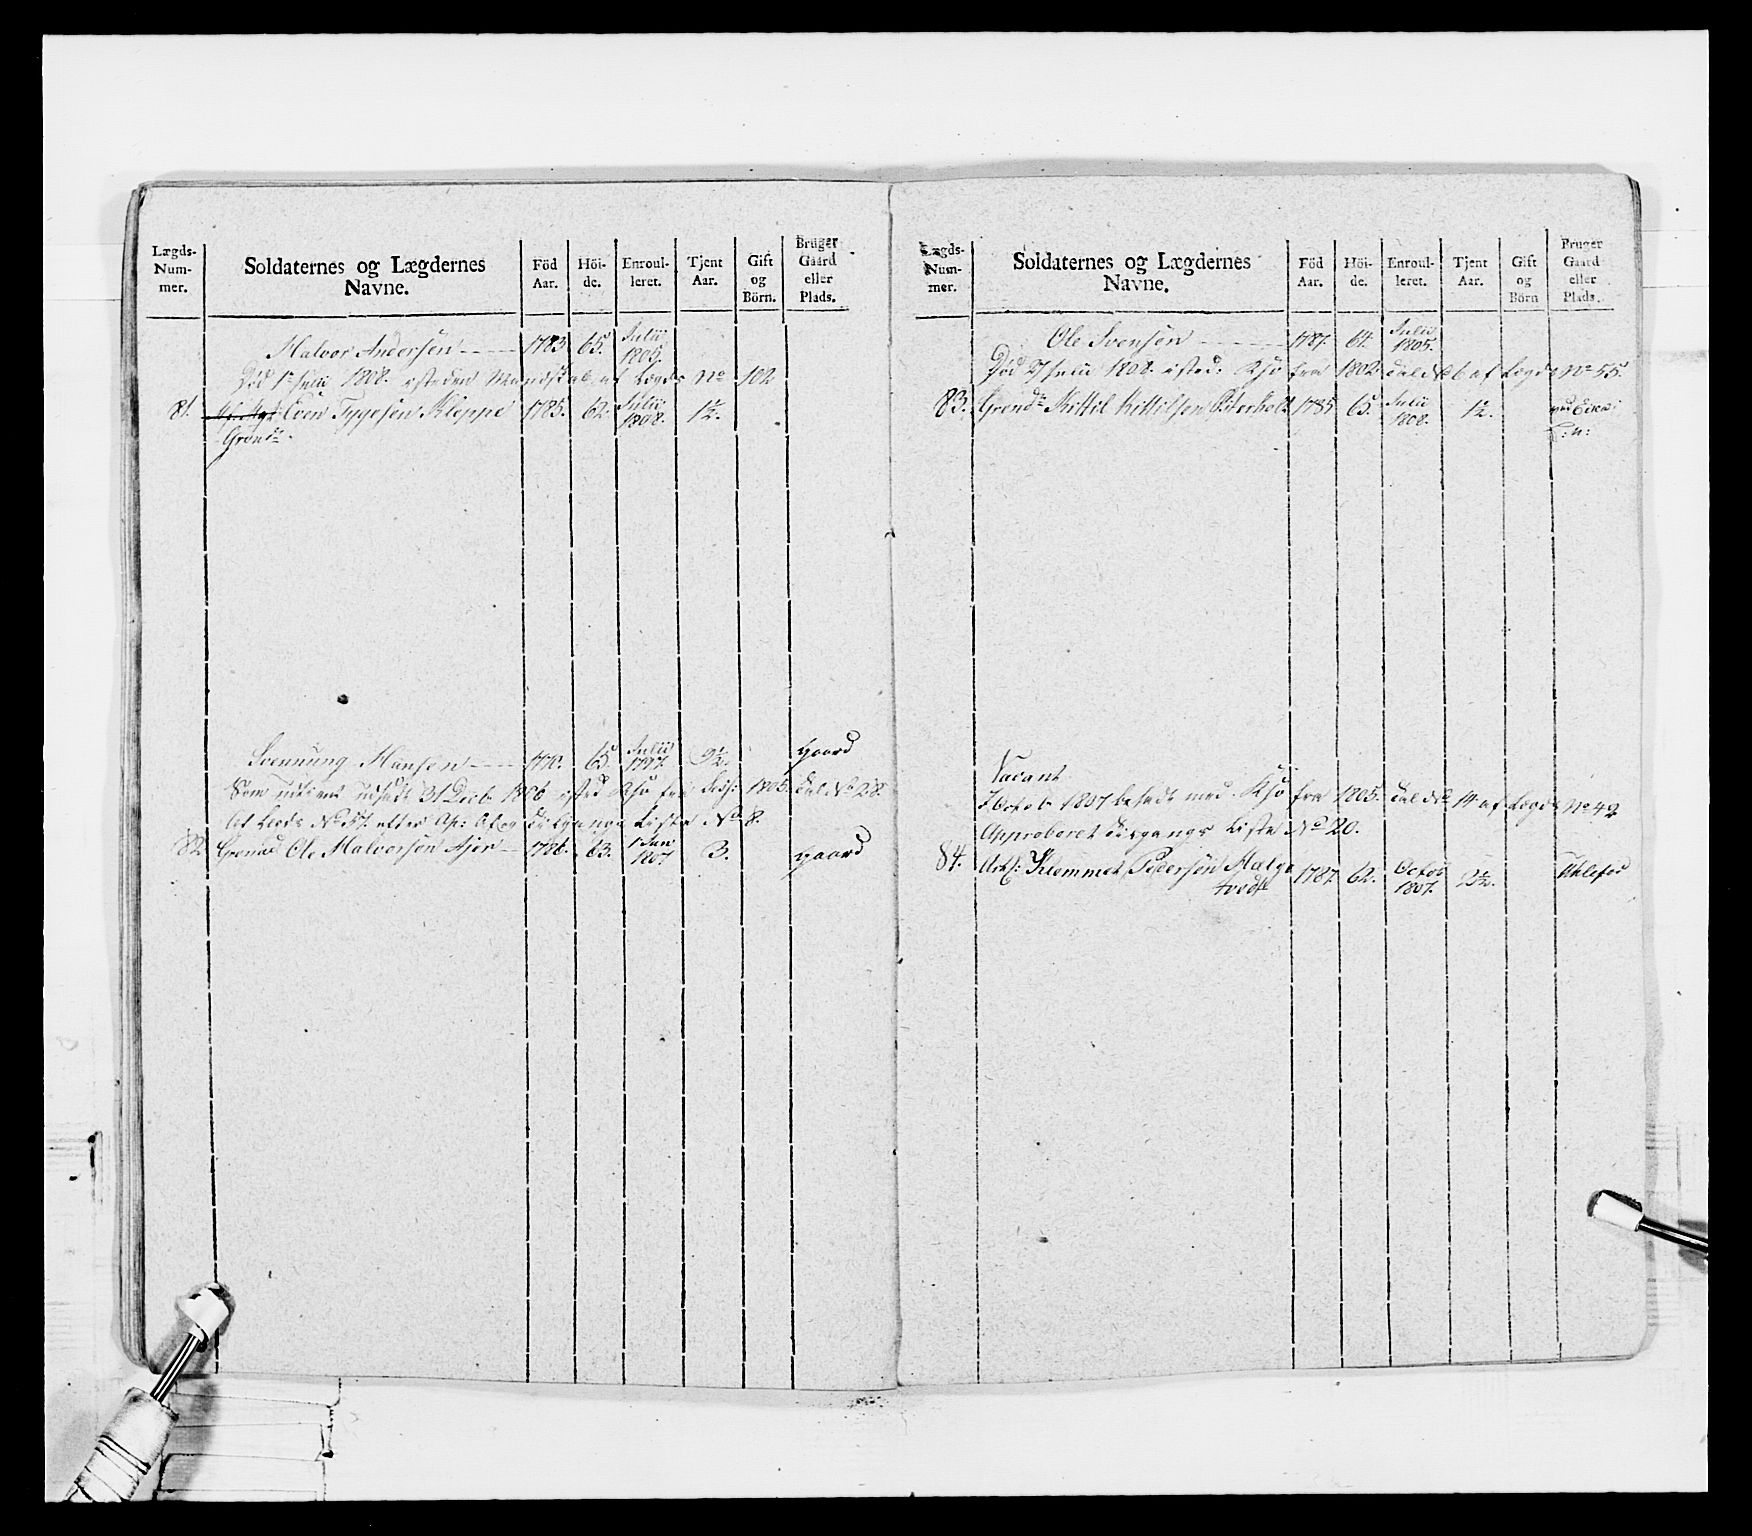 Lægds-Num-mer.
Soldaternes og Lægdernes Navne.
Föd Aar.
Höi-de.
Enroul-leret.
Tjent Aar.
Gift og Börn.
Bruger Gaard eller Plads.
Halvor Andersen 1783. 65. Julii 1805.
Död 1te Julii 1808. isteden Mandskab af Lægds No 102
81. Even Tygesen Kleppe 1785. 62. Julii 1808. 1½.
Grendr.
Svennung Hansen 1770. 65. Julii 1797. 9½. gaard
Som udtient udsadt 31 Decb. 1806 isted Khß fra Sess: 1805. dal No 28.
af Lægds No 57. efter Ap: Af og Tilgangs Liste No 8.
82. Grenad Ole Halvorsen Ajer 1786. 63. 1 Jan 1807 3. gaard
Lægds-Num-mer.
Soldaternes og Lægdernes Navne.
Föd Aar.
Höi-de.
Enroul-leret.
Tjent Aar.
Gift og Börn
Bruger Gaard eller Plads.
Ole Svensen 1787. 64. Julii 1805.
Död 27 Julii 1808. isted. Khß fra 1802 dal No 26 af Lægds No 55.
83. Grendr Kittil Kittilsen Österholt 1785 65. Julii 1808. 1½.
Vacant
7 Octob. 1807 besadt med Khß fra 1805. dal No 14 af Lægds No 42
Approberet Tilgangs Liste No 20.
84. Klemmet Pedersen Hælge 1787. 62. Octob 1807. 2½. Uhlefos
tvedt